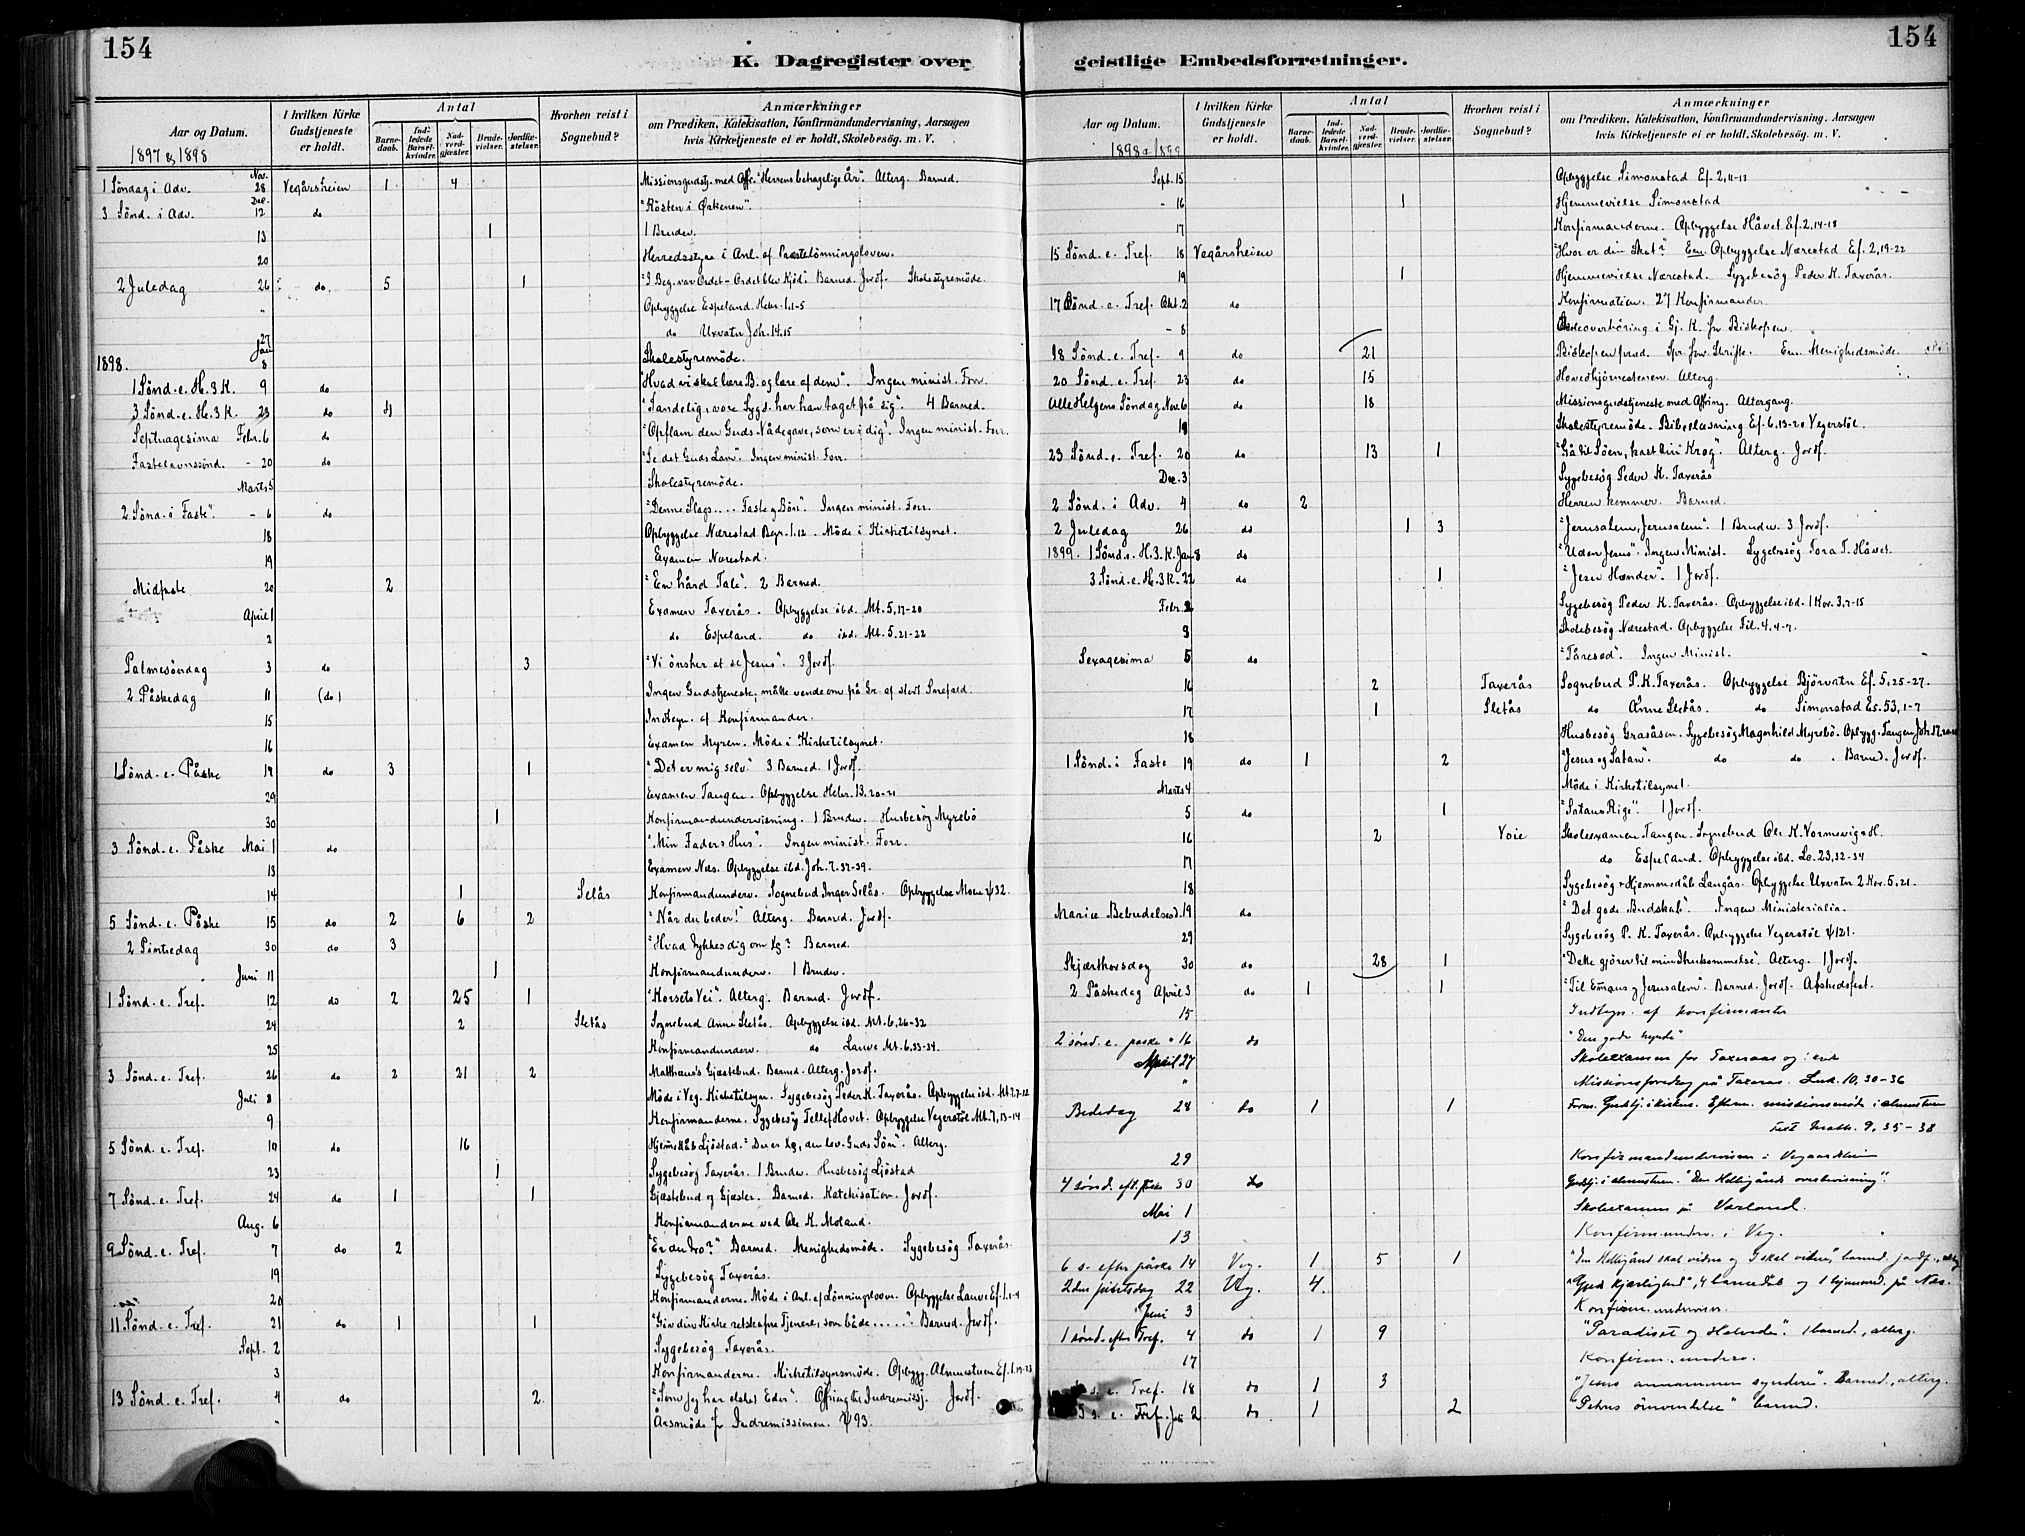 154
154
K. Dagregister over geistlige Embedsforretninger.
Aar og Datum.
1897 & 1898
I hvilken Kirke Gudstjeneste er holdt.
Antal
Barne-daab.
Ind-ledede Barsel-kvinder.
Nad-verd-gjæster.
Brude-vielser.
Jordfæ-stelser.
Hvorhen reist i Sognebud?
Anmærkninger
om Prædiken, Katekisation, Konfirmandundervisning, Aarsagen
hvis Kirketjeneste ei er holdt, Skolebesög. m. V.
1 Söndag i Adv. Nov. 28 Vegårsheien 1 4 Missionsgudstj. med Offr. "Herrens behagelige År". Alterg. Barned.
3 Sönd. i Adv. Dec. 12 do "Rösten i Örkenen".
13 1 1 Brudev.
20 Herredsstyre i Anl. af Præstelönningsloven.
2 Juledag 26 do. 5 1 "I Beg. var Ordet - Ordet blev Kjöd". Barned. Jordf. Skolestyremöde.
" Opbyggelse Espeland. Hebr. 1.1-5
27 do Uxvatn Joh. 14.15
1898. Jan 8 Skolestyremöde.
1 Sönd. e. H. 3 K. 9 do "Hvad vi skal lære B. og lære af dem". Ingen minist. Forr.
3 Sönd. e. H. 3 K. 23 do 4 "Sandelig, vore Sygd. har han taget på sig". 4 Barned.
Septuagesima Febr. 6 do "Opflam den Guds Nådegave, som er i dig". Ingen minist. Forr.
Fastelavnssönd. - 20 do "Se det Guds Lam". Ingen minist. Forr.
Marts 5 Skolestyremöde.
2 Sönd. i Faste". - 6 do "Denne Slags.... Faste og Bön". Ingen minist. Forr.
18 Opbyggelse Nærestad 1.12. Möde i Kirketilsynet.
19 Examen Nærestad.
Midfaste 20 2 "En hård Tale". 2 Barned.
April 1 Examen Taxerås. Opbyggelse ibd. Mt. 5,17-20
2 do Espeland. do ibd. Mt. 5.21-22
Palmesöndag 3 do 3 "Vi önsker at se Jesus". 3 Jordf.
2 Påskedag 11 (do) Ingen Gudstjeneste. måtte vende om på Gr. af stort Snefald.
15 Indtegn. af Konfirmander.
16 Examen Myren. Möde i Kirketilsynet.
1 Sönd. e. Påske 17 do 3 1 "Det er mig selv". 3 Barned. 1 Jordf.
29 Examen Tangen. Opbyggelse Hebr. 13.20-21
30 1 Konfirmandundervisning. 1 Brudev. Husbesög Myrebö
3 Sönd. e. Påske Mai 1 do "Min Faders Hus". Ingen minist. Forr.
13 Examen Næs. Opbyggelse ibd. Joh. 7.37-39.
14 1 Selås Konfirmandunderv. Sognebud Inger Selås. Opbyggelse Moen ψ32.
5 Sönd. e. Påske 15 do 2 6 2 "Når du beder!" Alterg. Barned. Jordf.
2 Pintsedag 30 do 3 "Hvad tykkes dig om Xs? Barned.
Juni 11 1 Konfirmandunderv. 1 Brudev.
1 Sönd. e. Tref. 12 do 2 25 1 "Korsets Vei". Alterg. Barned. Jordf.
24 2 Sletås Sognebud Anne Sletås. Opbyggelse ibd. Mt. 6.26-32
25 Konfirmandunderv. do Lauve Mt. 6.33-34.
3 Sönd. e. Tref. 26 do 2 21 2 Matthæus's Gjæstebud. Barned. Alterg. Jordf.
Juli 8 Möde i Veg. Kirketilsyn. Sygebesög Peder K. Taxerås. Opbyggelse ibd. Mt. 7.7-12
9 Konfirmanderne. Sygebesög Tellef Hovet. Opbyggelse Vegerstöl Mt. 7,13-14
5 Sönd. e. Tref. 10 do 16 Hjemmedåb Ljöstad. "Du er Xs, den lev. Guds Sön". Alterg.
23 1 Sygebesög Taxerås. 1 Brudev. Husbesög Ljöstad
7 Sönd. e. Tref. 24 do 1 1 Gjæstebud og Gjæster. Barned. Katekisation. Jordf.
Aug. 6 Konfirmanderne ved Ole K. Moland.
9 Sönd. e. Tref. 7 do 2 "Er du tro?" Barned. Menighedsmöde. Sygebesög Taxerås.
19 Sygebesög Taxerås.
20 Konfirmanderne. Möde i Anl. af Lönningsloven. Opbyggelse Lauve Ef. 1.1-4
11 Sönd. e. Tref. 21 do 1 1 "Giv din Kirke retskafne Tjenere, som både....." Barned. Jordf.
Sept. 2 Sygebesög Taxerås.
3 Konfirmanderne. Kirketilsynsmöde. Opbygg. Almestuen Ef. 1.19-23
13 Sönd. e. Tref. 4 do 2 "Som jeg har elsket Eder". Offring til Indremissj. Jordf.
" Årsmöde for Indremissionen. ψ93.
Aar og Datum.
1898 & 1899
I hvilken Kirke Gudstjeneste er holdt.
Antal
Barne-daab.
Ind-ledede Barsel-kvinder.
Nad-verd-gjæster.
Brude-vielser.
Jordfæ-stelser.
Hvorhen reist i Sognebud?
Anmærkninger
om Prædiken, Katekisation, Konfirmandundervisning, Aarsagen
hvis Kirketjeneste ei er holdt, Skolebesög. m. V.
Sept. 15 Opbyggelse Simonstad Ef. 2,11-13
- 16 1 Hjemmevielse Simonstad
17 Konfirmanderne. Opbyggelse Håvet Ef. 2,14-18
15 Sönd. e. Tref. 18 Vegårsheien "Hvor er din Skat? Em. Opbyggelse Nærestad Ef. 2,19-22
19 1 Hjemmevielse Nærestad. Sygebesög Peder K. Taxerås.
17 Sönd. e. Tref. Okt. 2 do Konfirmation. 27 Konfirmander
- 8 i Gj. K. for Biskopen.
18 Sönd. e. Tref. 9 do 21 Biskopen præd. Spr. for Skrifte. Em. Menighedsmöde.
20 Sönd. e. Tref. 23 do 15 Hovedhjörnestenen. Alterg.
Alle Helgens Söndag Nov. 6 do 18 Missionsgudstjeneste med Offring. Altergang.
Skolestyremöde. Bibellæsning Ef. 6,13-20 Vegerstöl.
23 Sönd. e. Tref. 20 do 13 1 "Gå til Söen, kast din Krog". Alterg. Jordf.
Dec. 3 Sygebesög Peder K. Taxerås
2 Sönd. i Adv. 4 do 2 Herren kommer. Barned.
2 Juledag 26 do 1 3 "Jerusalem, Jerusalem". 1 Brudev. 3 Jordf.
1899. 1 Sönd. e. H. 3. K. Jan 8 do "Uden Jesus". Ingen Minist. Sygebesög Tora T. Håvet.
3 Sönd. e. H. 3 K. 22 do 1 "Jesu Hænder". 1 Jordf.
Febr. 2 Sygebesög Peder K. Taxerås. Opbyggelse ibd. 1 Kor. 3.7-15
3 Skolebesög Nærestad. Opbyggelse Fil. 4.4-7.
Sexagesima 5 do "Tåresæd". Ingen Minist.
16 2 Taxerås Sognebud P. K. Taxerås. Opbyggelse Björvatn Ef. 5,25-27.
17 1 Sletås do Anne Sletås. do Simonstad Es. 53,1-7
18 Husbesög Gråsåsen. Sygebesög Magnhild Myrebö. Opbygg. Tangen Joh. 17.
1 Sönd. i Faste 19 do 1 2 "Jesus og Satan". do do. Barned. Jordf.
Marts 4 Möde i Kirketilsynet.
5 do 1 "Satans Rige". 1 Jordf.
16 2 Voie Skoleexamen Tangen. Sognebud Ole K. Vormevig + H.
17 do Espeland. Opbyggelse ibd. Lc. 23,32-34
18 Sygebesög + Hjemmedåb Langås. Opbyggelse Uxvatn 2 Kor. 5.21.
Mariæ Bebudelsesd. 19 do "Det gode Budskab". Ingen Ministerialia.
29 Sygebesög P. K. Taxerås. Opbyggelse Vegerstöl ψ121.
Skjærthorsdag 30 do 28 1 "Dette gjörer til min Ihukommelse". Alterg. 1 Jordf.
2 Påskedag April 3 do 1 1 "Til Emaus og Jerusalem". Barned. Jordf. Afskedsfest.
15 Indtegn. af konfirmanter
2 sönd. e. paske " 16 do "Den gode hyrde"
April 27 Skoleexamen for Taxeraas og
" Missionsforedrag på Taxeras. Luk. 10, 30-36
Bededag 28 do 1 1 Form. Gudstj. i kirken. Efterm. missionsmöde i almestuen
text Math. 9, 35-38
29 Konfirmandundervisn. i Vegaardsheim
4 sönd. eft. paske 30 do Gudstj. i almestuen. "Den Helligånds overbevisning".
Mai 1 Skoleexamen på Varland.
13 Konfirmundv. i Veg.
6 s. efter påske 14 Veg. 1 5 1 "Den Helligånd skal vidne og I skal vidne", barned. jordf.,
2den pinsedag 22 Veg. 4. kjærlighed", 4 barnedåb og 1 hjemmed. på Næs.
Juni 3 Konfirm.undervisn.
1 sönd. efter Tref. 4 do 1 9 "Paradiset og Helvede". 1 barned., alterg.
17 Konfirm. underv.
s. e. Tref. 18 do 1 3 "Jesus annammer syndere". Barned., alterg.
s. e. Tref. Juli 2 do. 1 2 "Petrus omvendelse" barned.